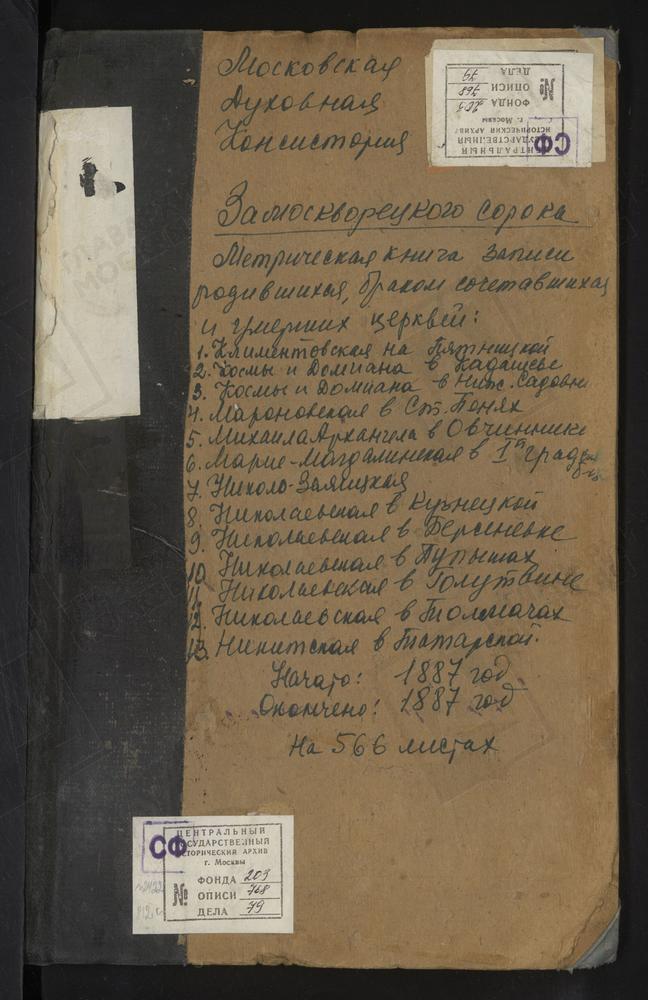 Московская
Духовная
Консистория
Замоскворецкого сорока
Метрическая книга записи
родившихся, браком сочетавшихся
и умерших церквей:
1. Климентовская на Пятницкой
2. Космы и Домиана в Кадашеве
3. Космы и Домиана в Ниж. Садовн
4. Мароновская в Ст. Понях
5. Михаила Архангела в Овчиннике
6. Марие-Магдалинская в 1й град
7. Николо-Заяицкая
8. Николаевская в Кузнецкой
9. Николаевская в Берсеневке
10 Николаевская в Пупышах
11 Николаевская в Голутвине
12. Николаевская в Толмачах
13. Никитская в Татарской.
Начато: 1887 год
Окончено: 1887 год
На 566 листах
СФ
ЦЕНТРАЛЬНЫЙ
ГОСУДАРСТВЕННЫЙ
ИСТОРИЧЕСКИЙ АРХИВ
г. Москвы
№
ФОНДА 203
ОПИСИ 768
ДЕЛА 79
СФ
ЦЕНТРАЛЬНЫЙ
ГОСУДАРСТВЕННЫЙ
ИСТОРИЧЕСКИЙ АРХИВ
г. Москвы
№
ФОНДА 203
ОПИСИ 768
ДЕЛА 79